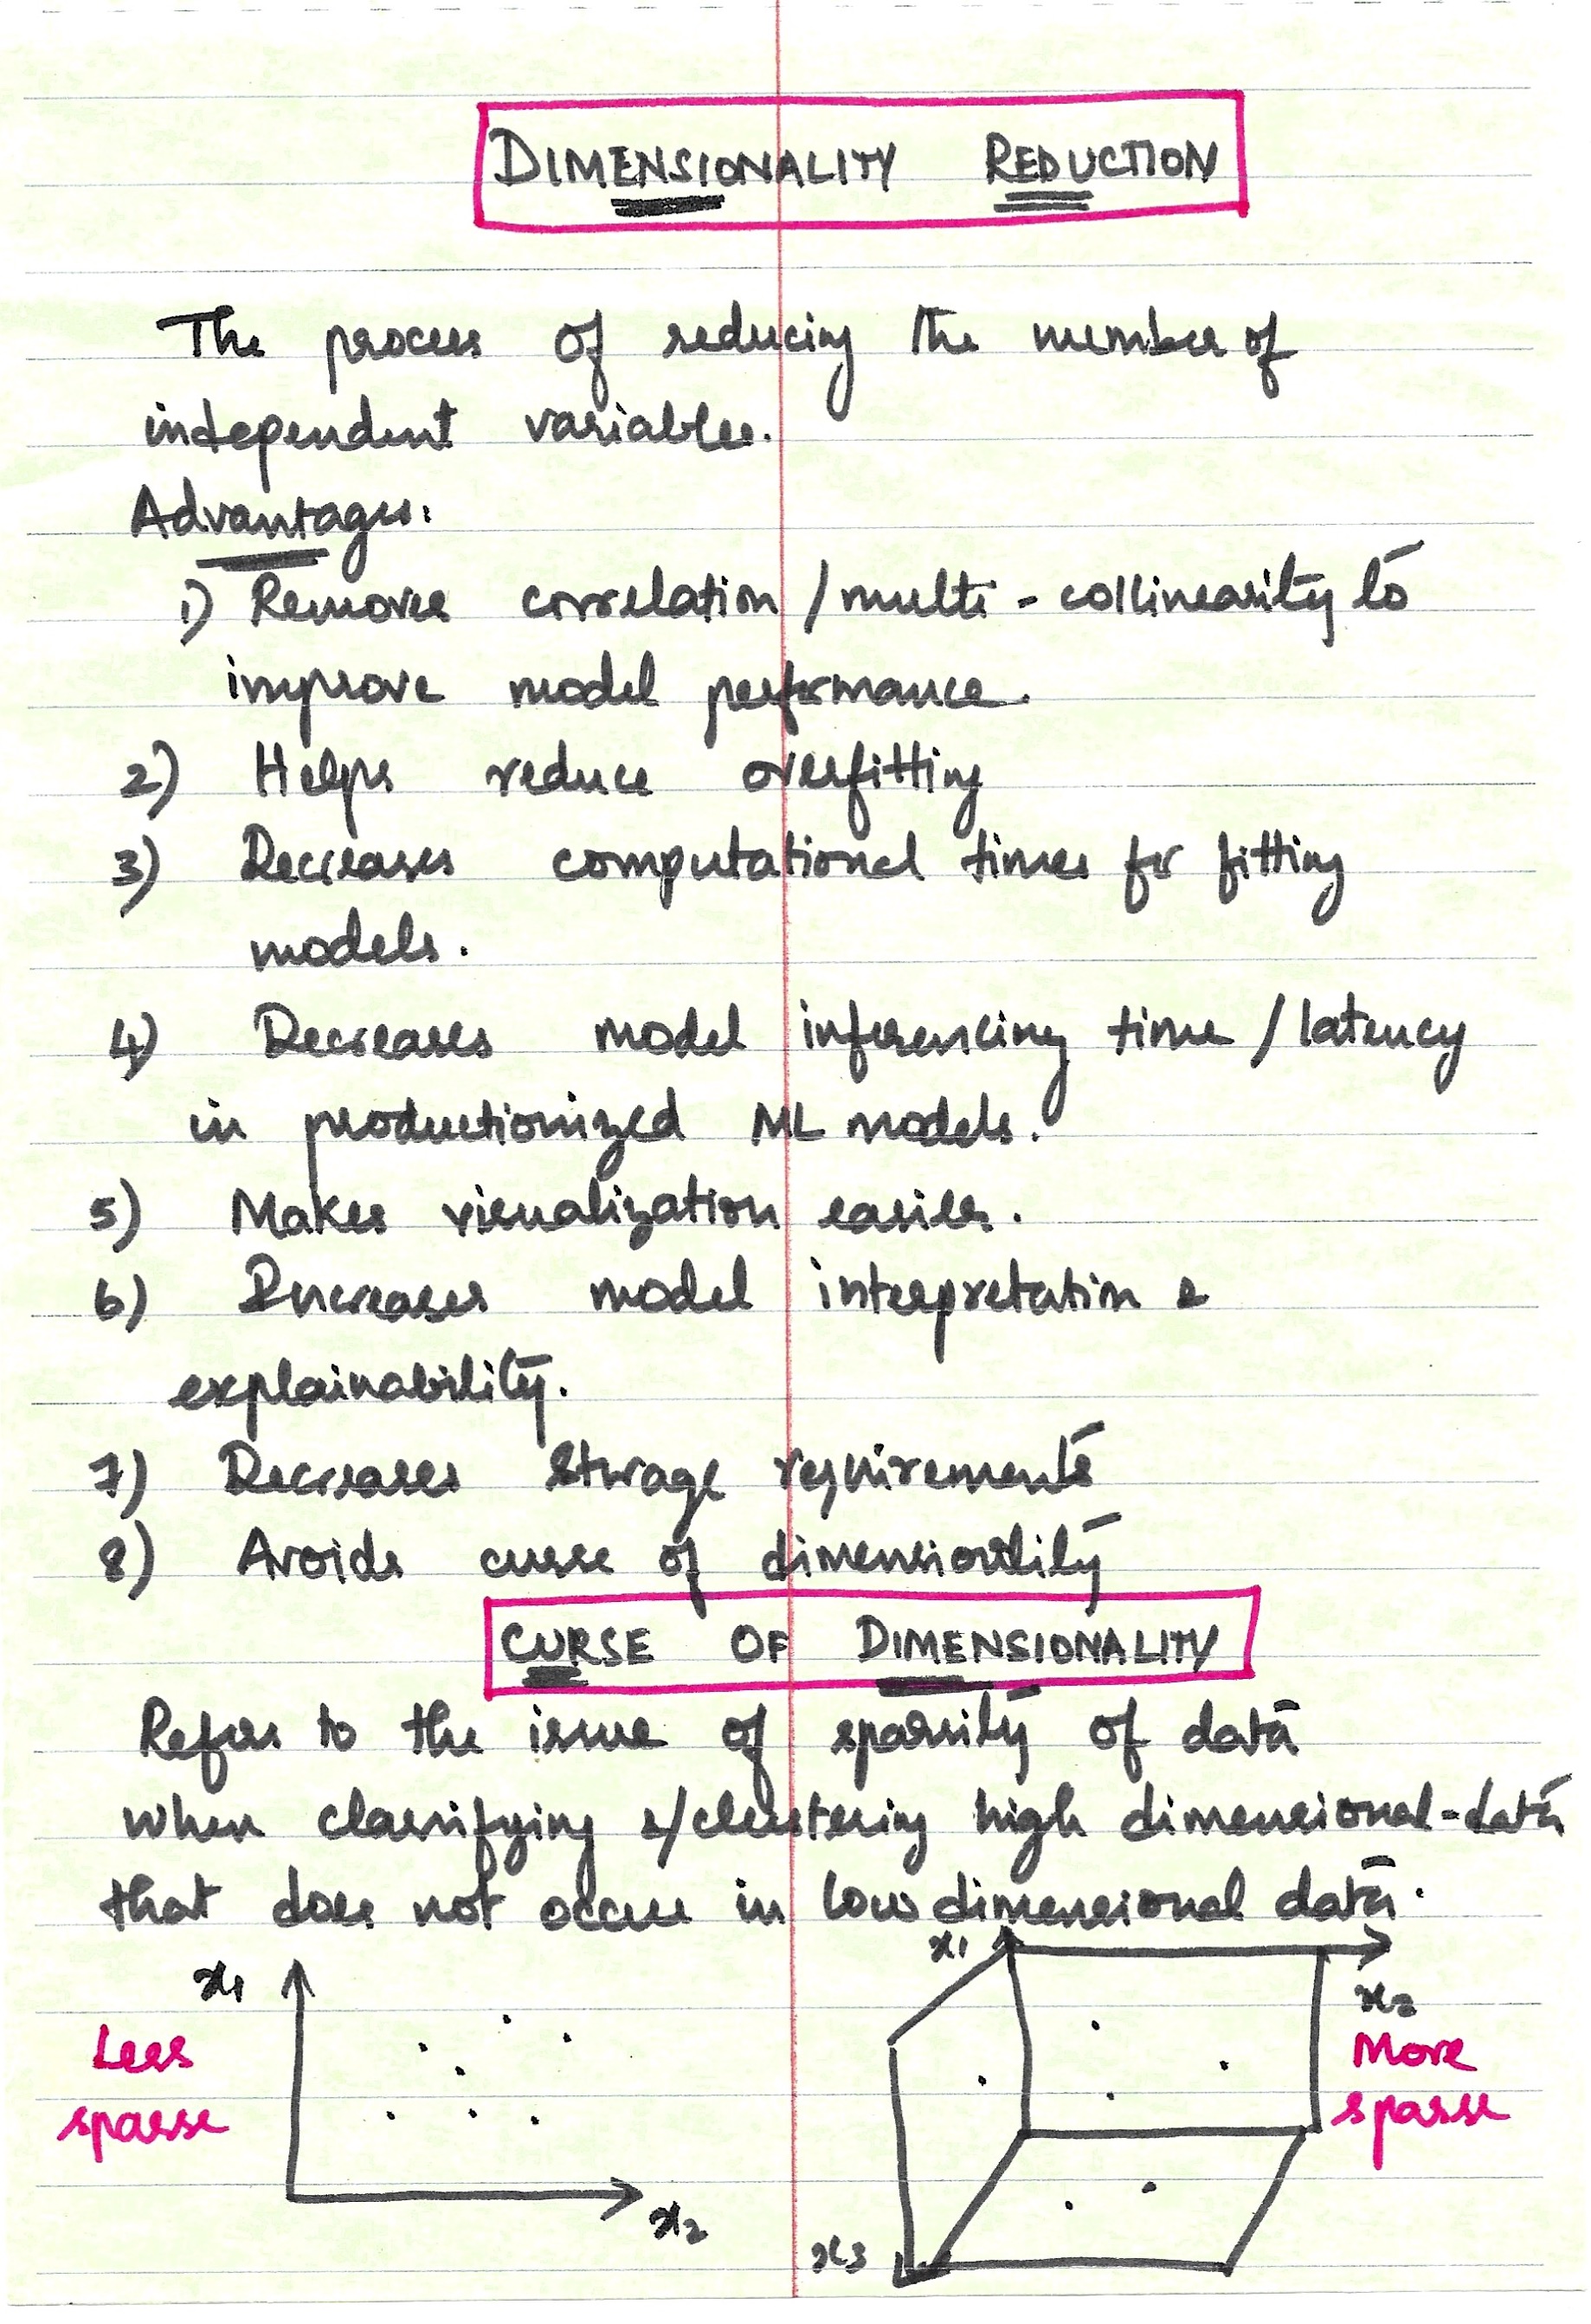 DIMENSIONALITY REDUCTION
The process of reducing the number of
independent variables.
Advantages:
1) Removes correlation / multi - collinearity to
improve model performance.
2) Helps reduce overfitting
3) Decreases computational times for fitting
models.
4) Decreases model inferencing time / latency
in productionized ML models.
5) Makes visualization easier.
6) Increases model interpretation &
explainability.
7) Decreases storage requirements
8) Avoids curse of dimensionality
CURSE OF DIMENSIONALITY
Refers to the issue of sparsity of data
when classifying &/clustering high dimensional-data
that does not occur in low dimensional data.
x1
Less
sparse
x2
x1
x2
More
sparse
x3